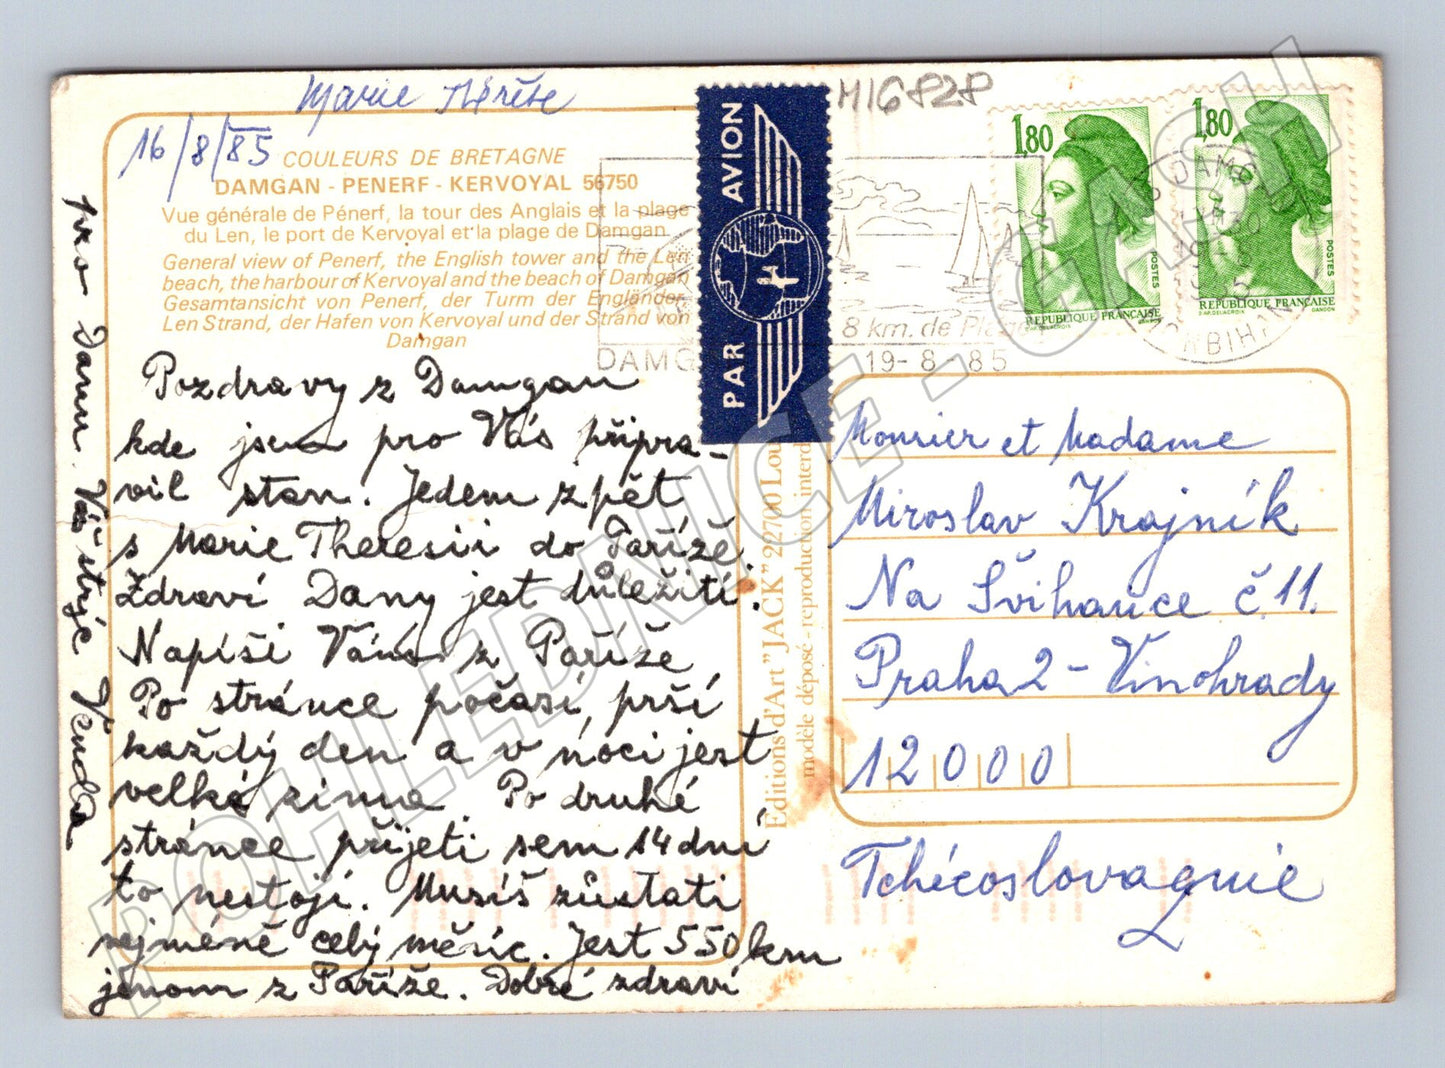 Marie Thérèse
M16828
16/8/85
COULEURS DE BRETAGNE
DAMGAN - PENERF - KERVOYAL 56750
Vue générale de Pénerf, la tour des Anglais et la plage
du Len, le port de Kervoyal et la plage de Damgan
General view of Penerf, the English tower and the Len
beach, the harbour of Kervoyal and the beach of Damgan
Gesamtansicht von Penerf, der Turm der Engländer
Len Strand, der Hafen von Kervoyal und der Strand von
Damgan
Pozdravy z Damgan
kde jsem pro Vás připra-
vil stan. Jedem zpět
s Marie Theresií do Paříže.
Zdraví Dany jest důležití.
Napíši Vám z Paříže
Po stránce počasí prší
každý den a v noci jest
velká zima. Po druhé
stránce přijeti sem 14 dní
to nestojí. Musíš zůstati
nejméně celý měsíc. Jest 550 km
jenom z Paříže. Dobré zdraví
pro Danu. Váš strýc Venda
PAR AVION
DAMG
8 km. de Plage
19-8-85
1,80
POSTES
REPUBLIQUE FRANÇAISE
D'AP. DELACROIX GANDON
1,80
POSTES
REPUBLIQUE FRANÇAISE
D'AP. DELACROIX GANDON
DAMG
Editions d'Art "JACK" 22700 Lou
modèle déposé - reproduction interd
Monsier et Madame
Miroslav Krajník
Na Švihance č 11.
Praha 2 - Vinohrady
12000
Tchécoslovaquie
POHLEDNICE.CASH